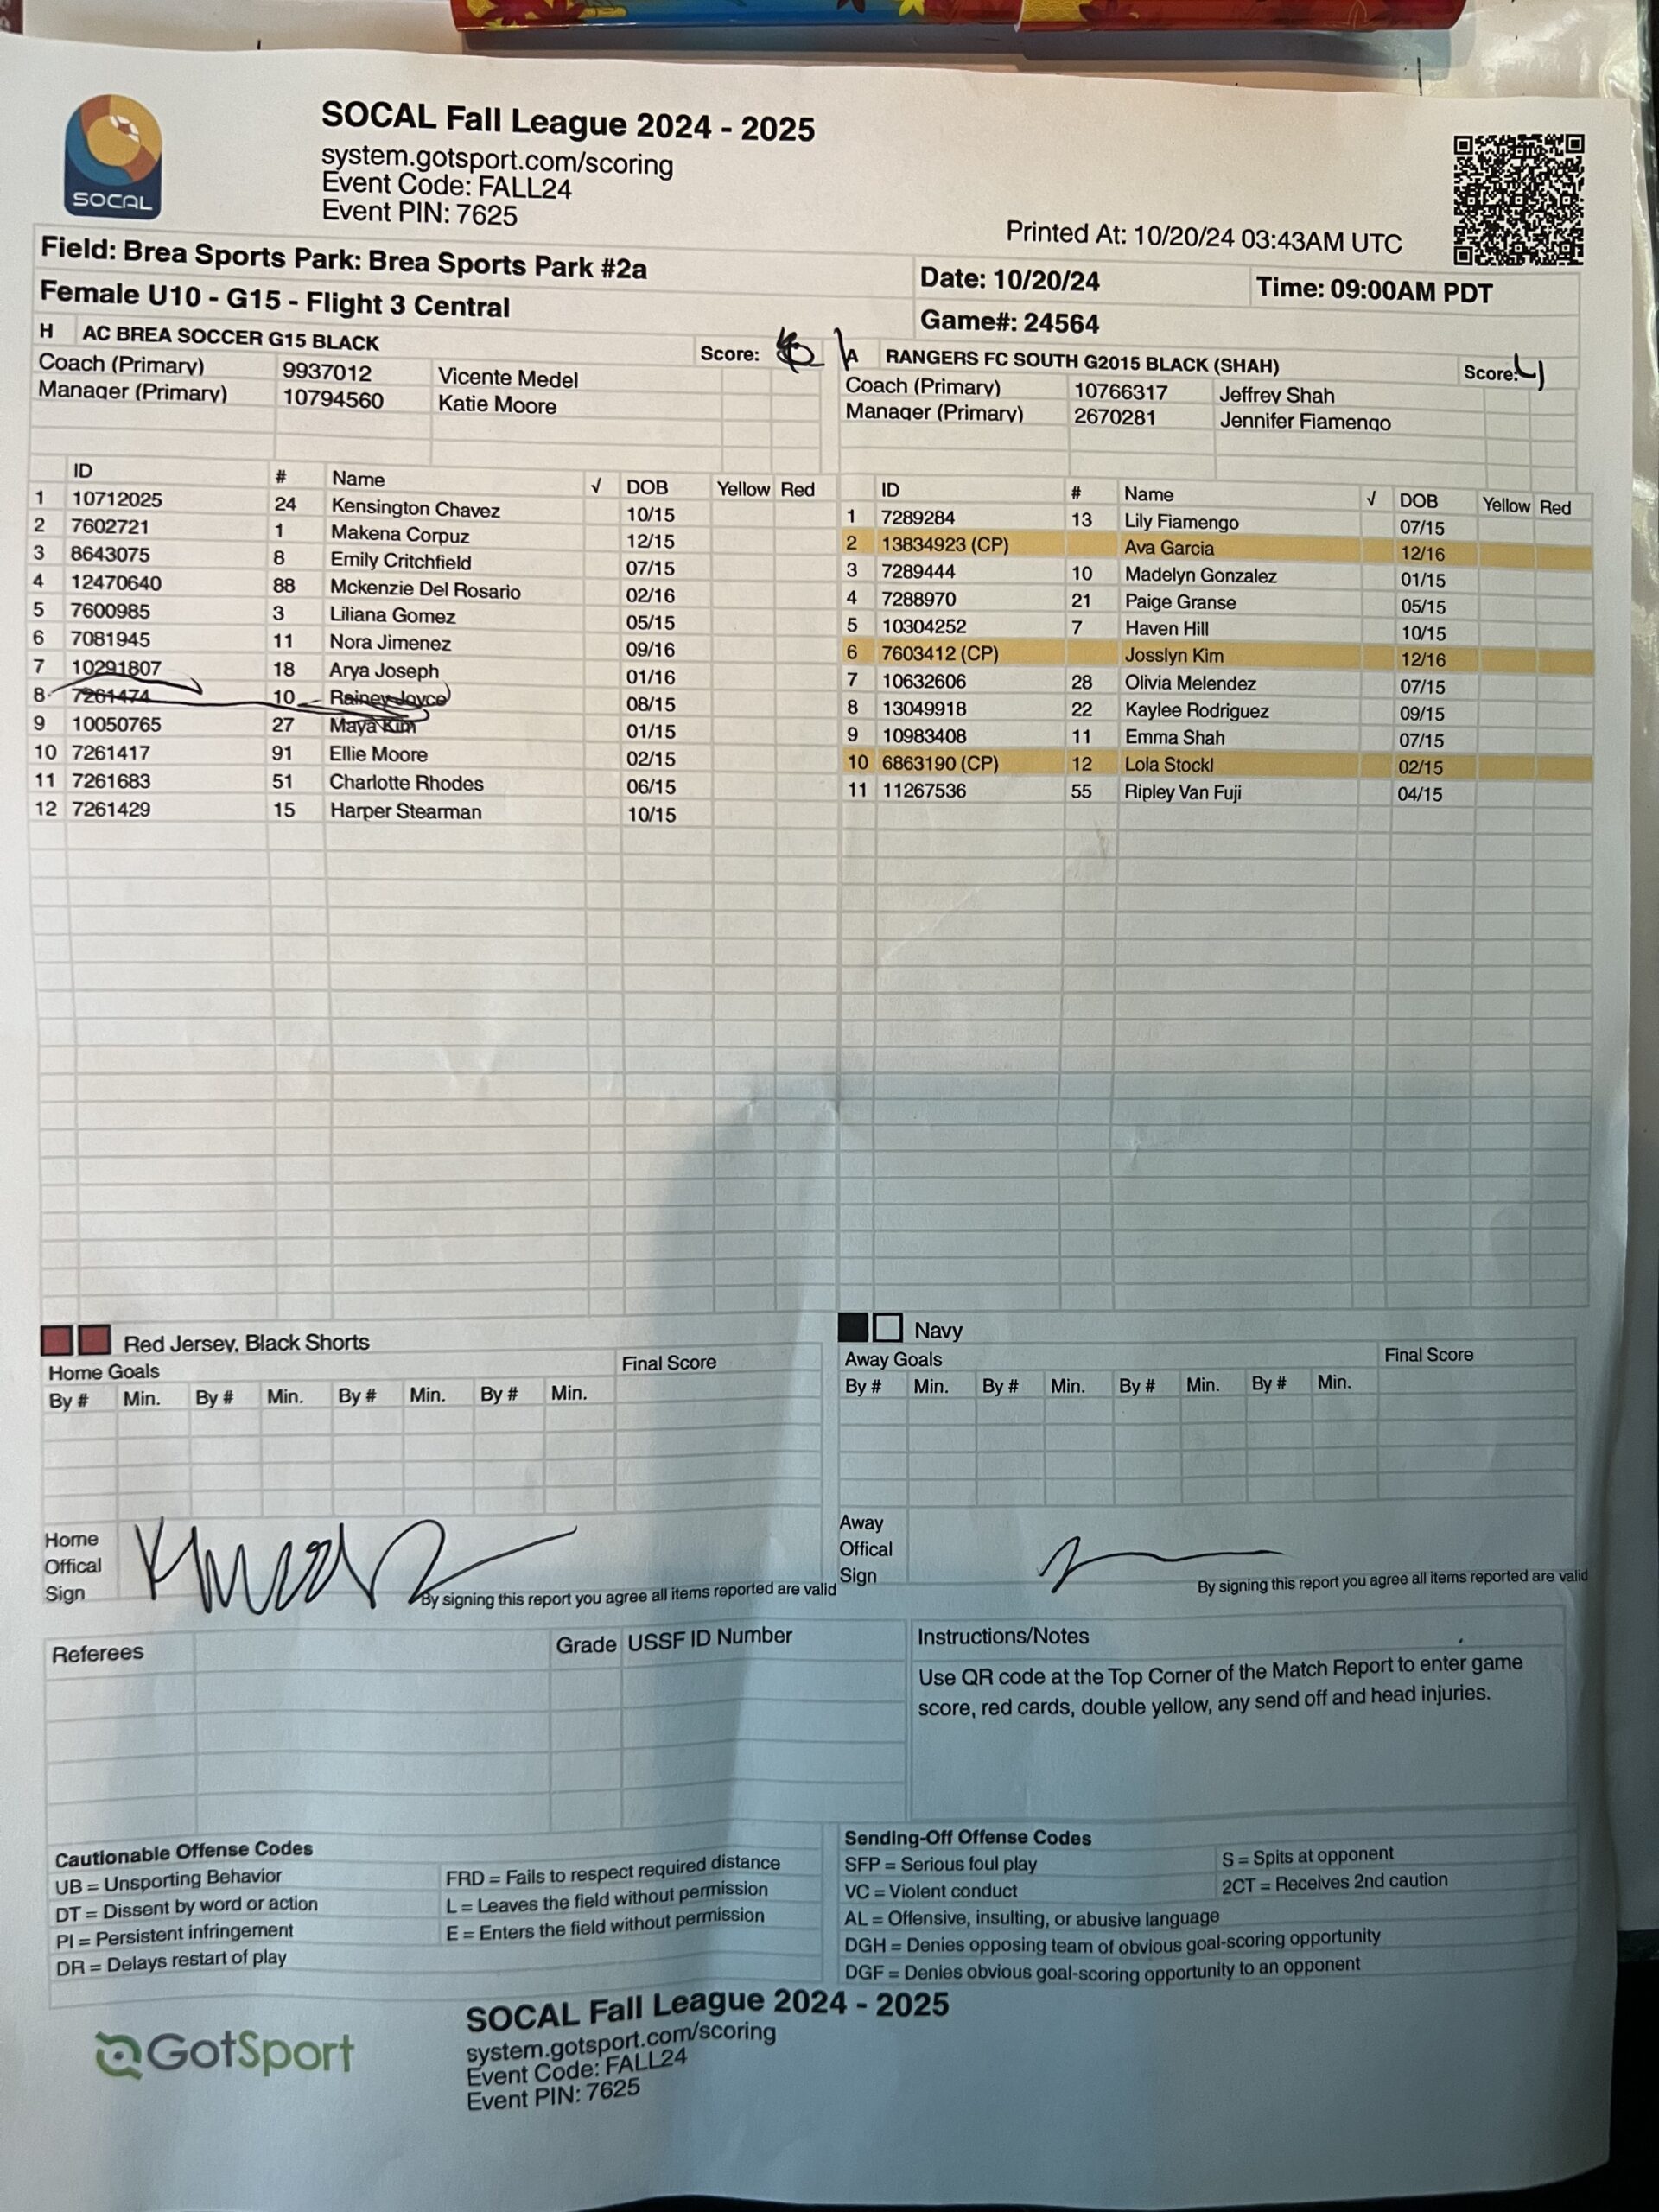 SOCAL
SOCAL Fall League 2024 - 2025
system.gotsport.com/scoring
Event Code: FALL24
Event PIN: 7625
Printed At: 10/20/24 03:43AM UTC
Field: Brea Sports Park: Brea Sports Park #2a
Date: 10/20/24 Time: 09:00AM PDT
Female U10 - G15 - Flight 3 Central
Game#: 24564
H AC BREA SOCCER G15 BLACK Score:
Coach (Primary) 9937012 Vicente Medel
Manager (Primary) 10794560 Katie Moore
A RANGERS FC SOUTH G2015 BLACK (SHAH) Score: 4
Coach (Primary) 10766317 Jeffrey Shah
Manager (Primary) 2670281 Jennifer Fiamengo
ID # Name √ DOB Yellow Red
1 10712025 24 Kensington Chavez 10/15
2 7602721 1 Makena Corpuz 12/15
3 8643075 8 Emily Critchfield 07/15
4 12470640 88 Mckenzie Del Rosario 02/16
5 7600985 3 Liliana Gomez 05/15
6 7081945 11 Nora Jimenez 09/16
7 10291807 18 Arya Joseph 01/16
8 7261474 10 Rainey Joyce 08/15
9 10050765 27 Maya Kim 01/15
10 7261417 91 Ellie Moore 02/15
11 7261683 51 Charlotte Rhodes 06/15
12 7261429 15 Harper Stearman 10/15
ID # Name √ DOB Yellow Red
1 7289284 13 Lily Fiamengo 07/15
2 13834923 (CP) Ava Garcia 12/16
3 7289444 10 Madelyn Gonzalez 01/15
4 7288970 21 Paige Granse 05/15
5 10304252 7 Haven Hill 10/15
6 7603412 (CP) Josslyn Kim 12/16
7 10632606 28 Olivia Melendez 07/15
8 13049918 22 Kaylee Rodriguez 09/15
9 10983408 11 Emma Shah 07/15
10 6863190 (CP) 12 Lola Stockl 02/15
11 11267536 55 Ripley Van Fuji 04/15
Red Jersey, Black Shorts
Home Goals Final Score
By # Min. By # Min. By # Min. By # Min.
Navy
Away Goals Final Score
By # Min. By # Min. By # Min. By # Min.
Home
Offical
Sign
By signing this report you agree all items reported are valid
Away
Offical
Sign
By signing this report you agree all items reported are valid
Referees Grade USSF ID Number
Instructions/Notes
Use QR code at the Top Corner of the Match Report to enter game
score, red cards, double yellow, any send off and head injuries.
Cautionable Offense Codes
UB = Unsporting Behavior
DT = Dissent by word or action
PI = Persistent infringement
DR = Delays restart of play
FRD = Fails to respect required distance
L = Leaves the field without permission
E = Enters the field without permission
Sending-Off Offense Codes
SFP = Serious foul play
VC = Violent conduct
AL = Offensive, insulting, or abusive language
DGH = Denies opposing team of obvious goal-scoring opportunity
DGF = Denies obvious goal-scoring opportunity to an opponent
S = Spits at opponent
2CT = Receives 2nd caution
GotSport
SOCAL Fall League 2024 - 2025
system.gotsport.com/scoring
Event Code: FALL24
Event PIN: 7625